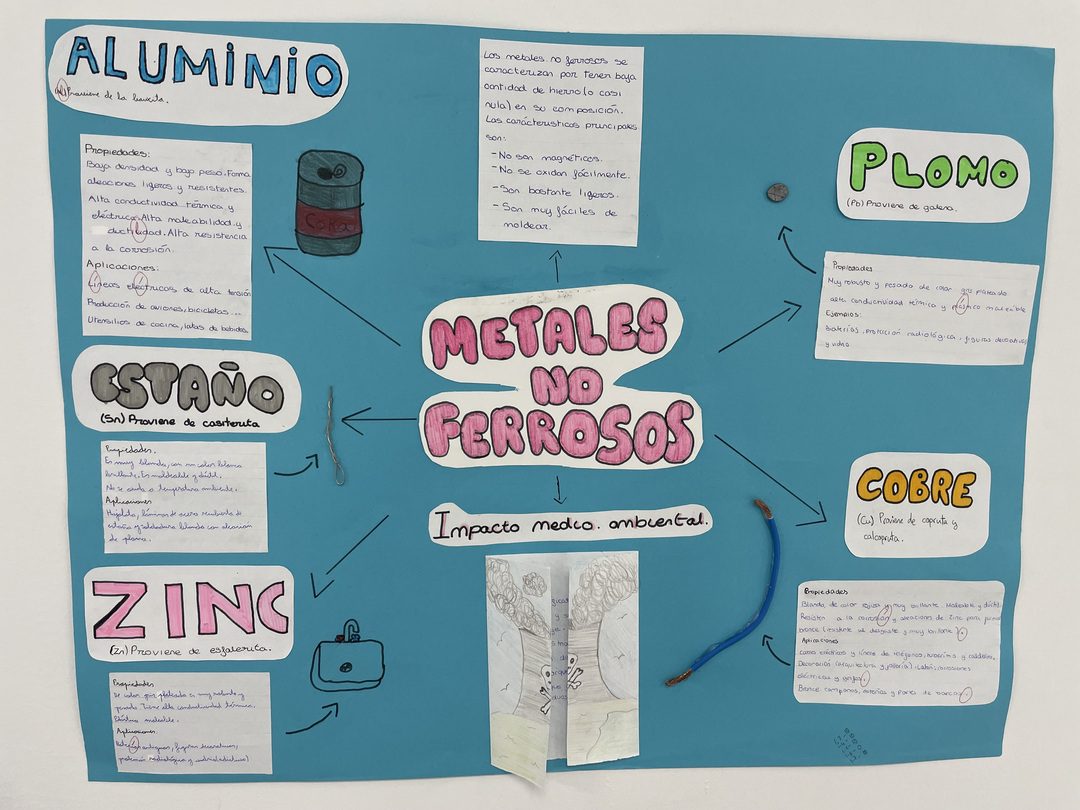 ALUMINIO
(Al) Proviene de la bauxita.
Propiedades:
Baja densidad y bajo peso. Forma
aleaciones ligeros y resistentes.
Alta conductividad térmica y
eléctrica. Alta maleabilidad y
ductilidad. Alta resistencia
a la corrosión.
Aplicaciones:
Líneas eléctricas de alta tensión
Producción de aviones, bicicletas...
Utensilios de cocina, latas de bebidas.
Los metales no ferrosos se
caracterizan por tener baja
cantidad de hierro (o casi
nula) en su composición.
Las carácteristicas principales
son:
- No son magnéticos.
- No se oxidan fácilmente.
- Son bastante ligeros.
- Son muy fáciles de
moldear.
PLOMO
(Pb) Proviene de galena.
Propiedades
Muy robusto y pesado de color gris plateado
alta conductividad térmica y plástico maleable
Ejemplos:
baterías, protección radiológica, figuras decorativas
y vidrio
METALES
NO
FERROSOS
ESTAÑO
(Sn) Proviene de casiterita
Propiedades.
Es muy blando, con un color blanco
brillante. Es moldeable y dúctil.
No se oxida a temperatura ambiente.
Aplicaciones
Hojalata, láminas de acero recubierto de
estaño y soldadura blanda con aleación
de plomo.
COBRE
(Cu) Proviene de cuprita y
calcopirita.
Propiedades
Blando, de color rojizo y muy brillante. Maleable y dúctil.
Resisten a la corrosión y aleaciones de zinc para
bronce (resistente al desgaste y muy brillante).
Aplicaciones
cables eléctricos y líneas de teléfonos, y calderas,
Decoración (arquitectura y joyería). Latón:
eléctricas y grifos.
Bronce campanas, y partes de barcos.
Impacto medio. ambiental.
ZINC
(Zn) Proviene de esfalerita.
Propiedades
De color gris plateado es muy robusto y
pesado. Tiene alta conductividad térmica.
Plástico maleable.
Aplicaciones
antiguas, figuras decorativas,
protección radiológica y